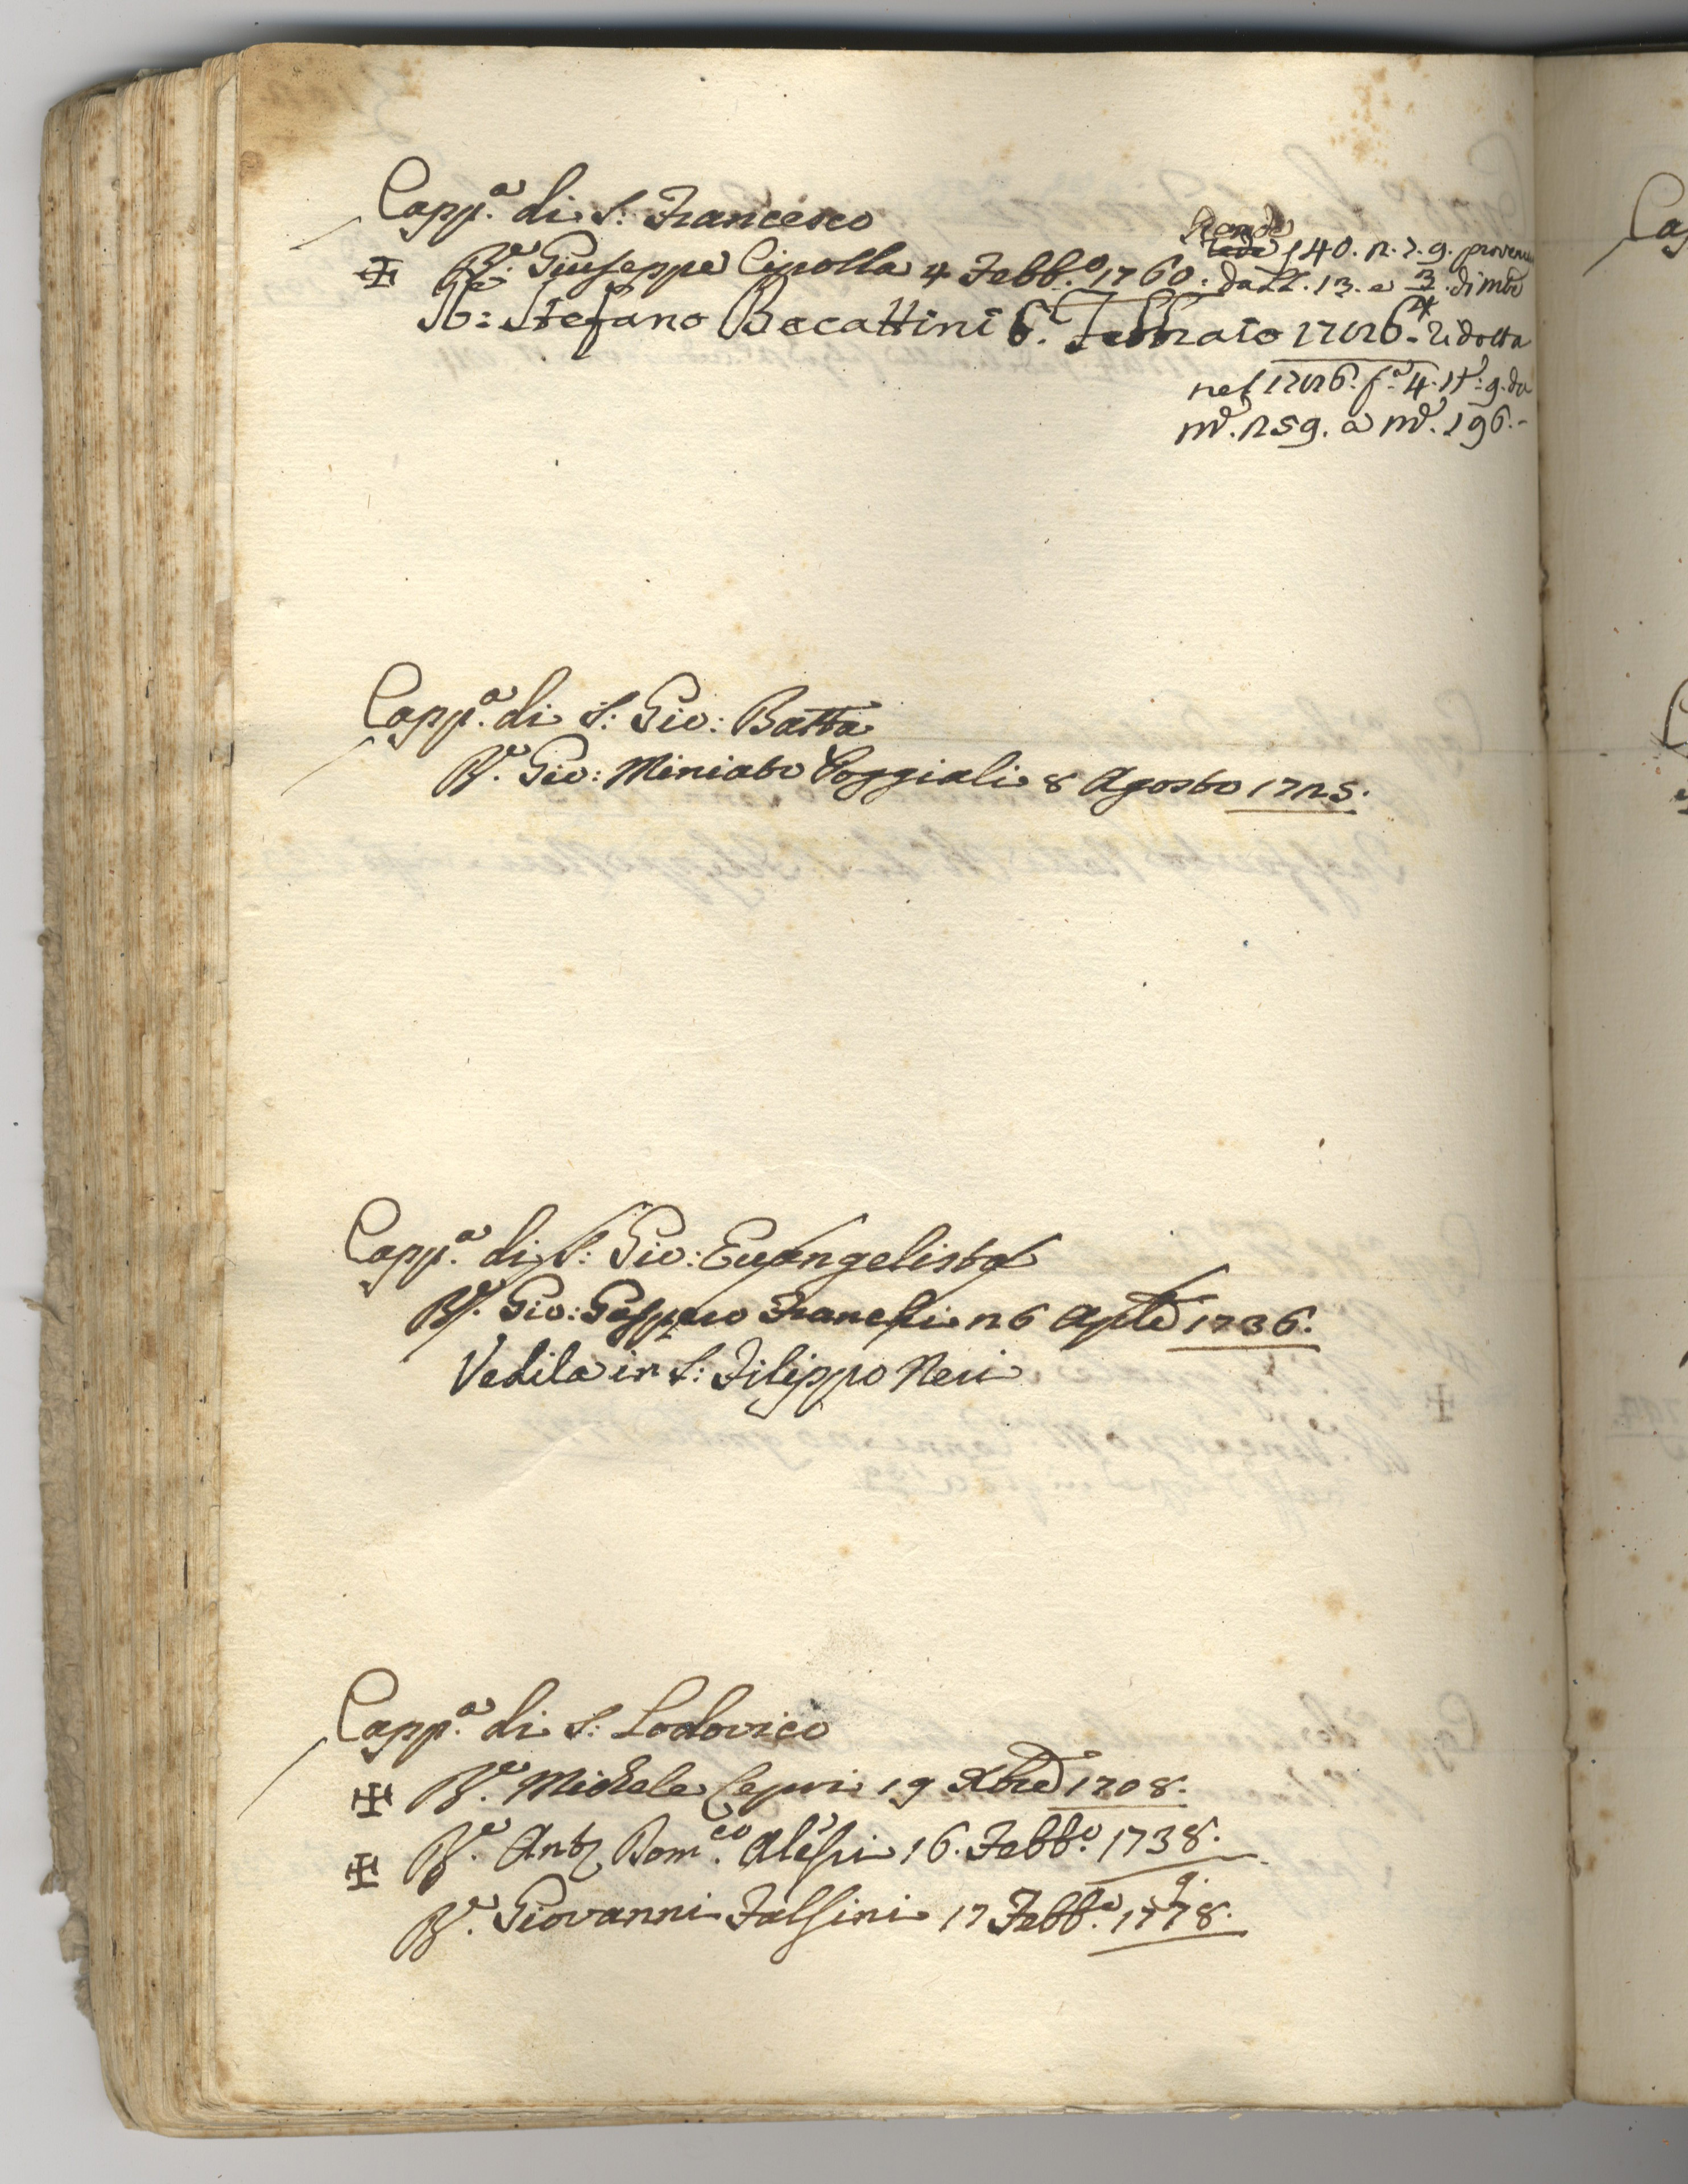 Capp.a di S: Francesco
R.e Giuseppe Cipolla 4 Febb.o 1760.
Rende
140. 2. 7. 9. proven
da LL. 13. e 3/4 di mõ
R.e: Stefano Becattini 6. Febbraio 1726. ridotta
nel 1726. f.a 4. 17: 9. da
m.a. 259. a m.a. 196.-
Capp.a di S: Gio: Batta
R.e Gio: Miniato Poggiali 8 Agosto 1725.
Capp.a di S: Gio: Euangelista
R.e Gio: Gasparo Franchi 26 Aple 1736.
Vedila in S: Filippo Neri
Capp.a di S: Lodovico
R.e Michele Lepri 19 Xbre 1708.
R.e Anto Dom.co Alessi 16. Febb.o 1738.
R.e Giovanni Falsini 17 Febb.o 1778.
9.
Cap